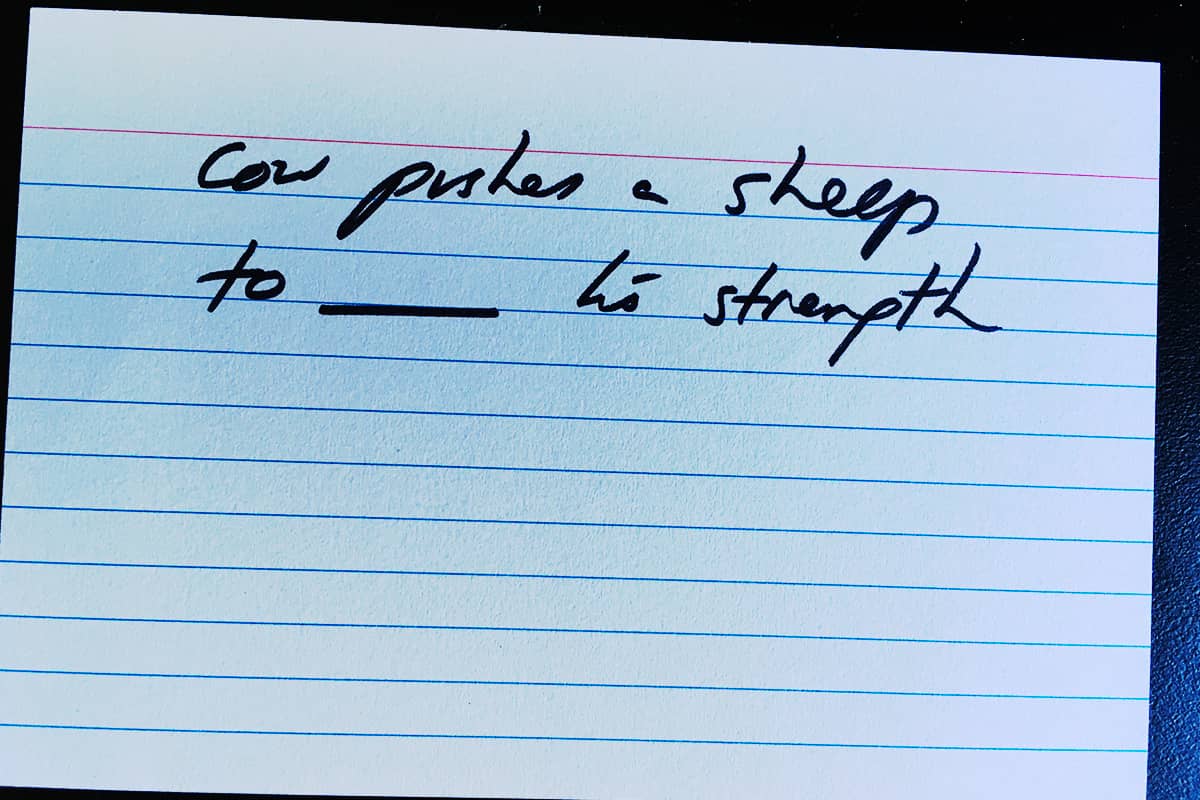 Cow pushes a sheep
to ______ his strength